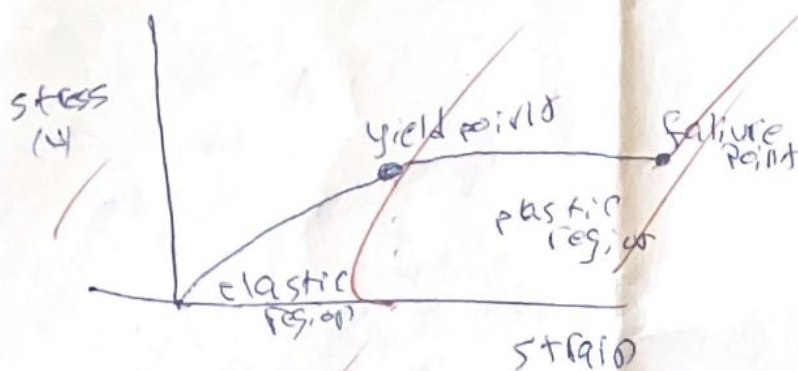 stress
yield point
failure
point
plastic
region
elastic
region
strain